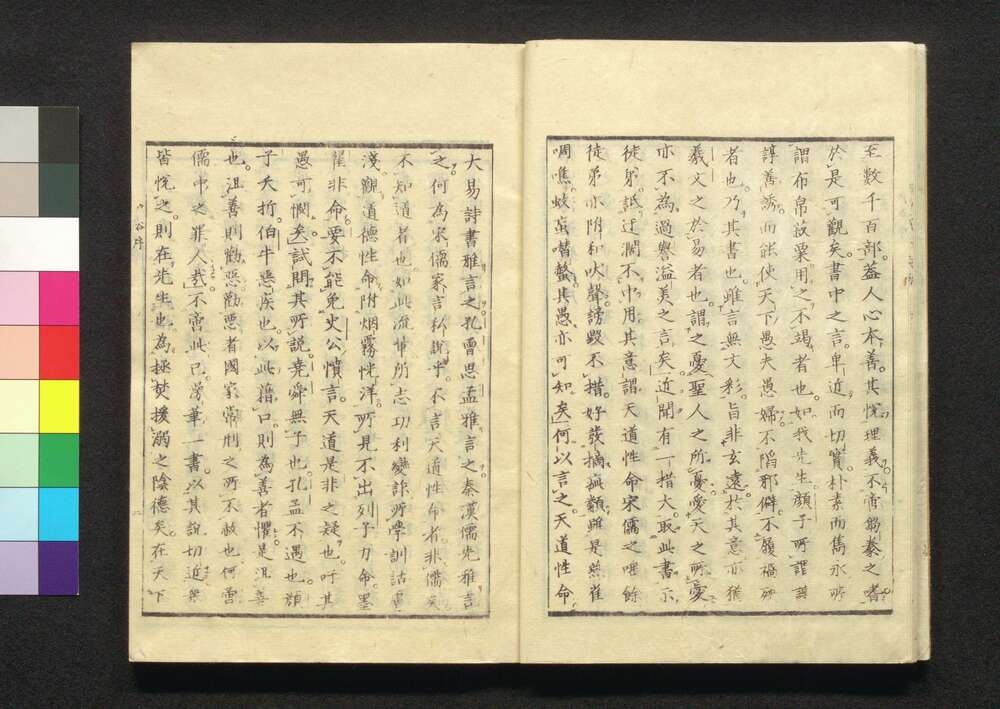 至數千百部。蓋人心本善。其悅理義。不啻芻豢之耆
於是可觀矣。書中之言。卑近而切實。朴素而雋永。所
謂布帛菽粟用之不竭者也。如我先生。顏子所謂
諄善誘。而能使天下愚夫愚婦。不陷邪僻。不履禍
者也。乃其書也。雖言無文彩。旨非玄遠。於其意亦猶
羲文之於易者也。謂之憂聖人之所憂。愛天之所愛
亦不為過譽溢美之言矣。近聞有一措大。取此書示
徒弟。詆迂闊不中用。其意謂天道性命宋儒之唾餘
徒弟亦附和吠聲。謗毀不措。好發擿無類。雖是燕雀
啁噍蚊虻噆蟄。其愚亦可知矣。何以言之。天道性命
大易詩書雅言之。孔曾思孟雅言之。秦漢儒先雅言
之。何為宋儒家言私說乎。不言天道性命者。非儒
不知道者也。如此流俗所志功利變詐。所學訓詁
淺。觀道德性命。附烟霧恍洋。所見不出列子力命墨
翟非命。要不能免史公憤言。天道是非之疑也。吁其
愚可憫矣。試問其所說。堯舜無子也。孔孟不遇也。顏
子夭折。伯牛惡疾也。以此藉口。則為善者懼。是沮善
也。沮善則勸惡。勸惡者國家常刑之所不赦也。何啻
儒中之罪人哉。不啻此已。滂筆一書。以其說切近
皆悅之。則在先生也。為拯焚援溺之陰德矣。在天下